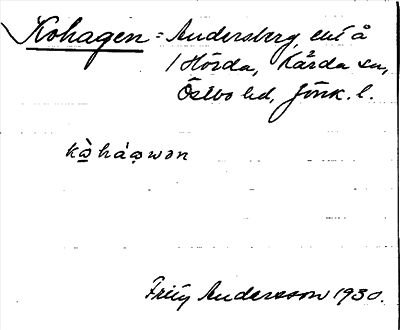 Kohagen = Andersberg, ent å
1 Hörda, Kärda sn,
Östbo hd, Jönk. l.
kò̱háǫwən
Fritz Andersson 1930.